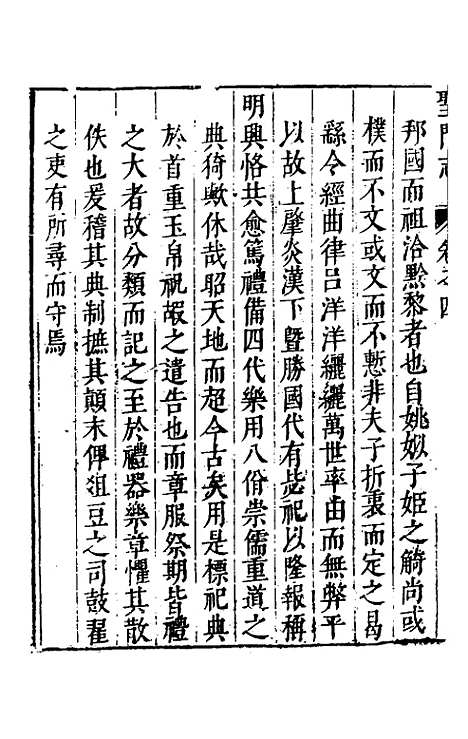 聖門志 卷之四
邦國而祖洽黔黎者也自姚姒子姬之觭尚或
樸而不文或文而不慙非夫子折衷而定之曷
繇令經曲律吕洋洋纚纚萬世率由而無弊乎
以故上肇炎漢下暨勝國代有毖祀以隆報稱
明興恪共愈篤禮備四代樂用八佾崇儒重道之
典猗歟休哉昭天地而超今古矣用是標祀典
於首重玉帛祝嘏之遺告也而章服祭期皆禮
之大者故分類而記之至於禮器樂章懼其散
佚也爰稽其典制摭其顛末俾俎豆之司鼓翟
之吏有所尋而守焉